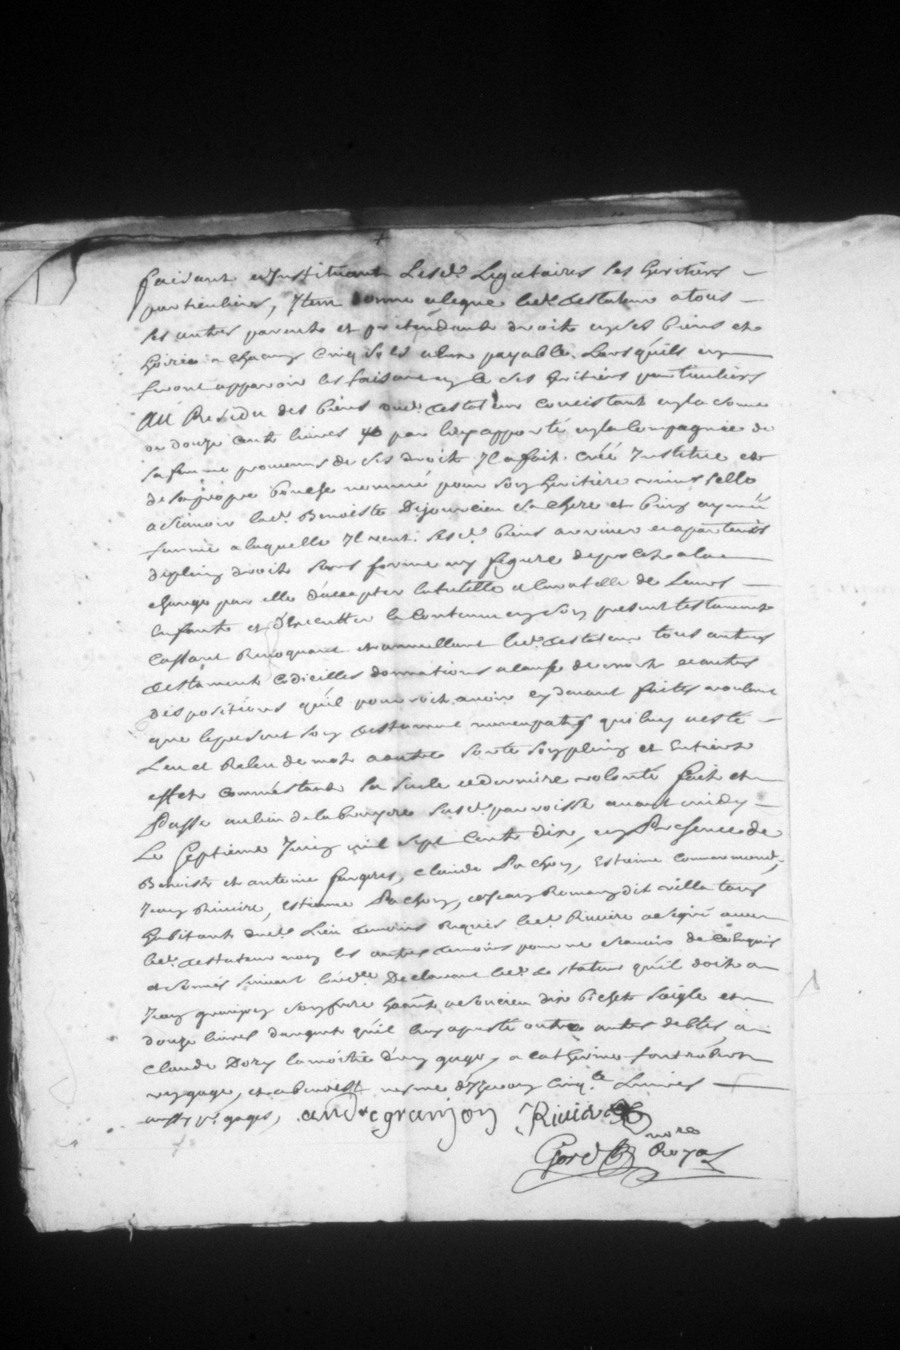 faisant et Instituant Lesd. Legataires ses heritiers
particuliers, Item donne et legue led. testateur a tous
ses autres parents et pretendants droits en ses biens et
hoirie a chacung Cinq sols payable Lors quils en
feront apparoir les faisant ses heritiers particuliers
Au Residu des biens dud. testateur concistant en la somme
de douze cents livres par luy apporté en la Compagnie de
sa femme provenus de ses droits Il a fait, créé Institue et
de sa propre bouche nommé pour son heritiere universelle
a scavoir lad. Benoiste Dijourcieu sa chere et bien aymeé
femme a laquelle Il veut sesd. biens arriver et apartenir
de plein droit sans forme ny figure de proces a la
charge par elle d'accepter la tutelle et curatelle de Leurs
enfants et d'executter le Contenu en son present testament
Cassant Revoquant et annullant led. testateur tous autres
testaments Codicilles donnations a cause de mort et autres
dispositions qu'il pourroit avoir cy devant faites voulant
que le present son testament nuncupatif que luy a esté
Leu et Releu de mot a autre sorte son plein et Entier
effet comme estant sa seule et derniere volonté fait et
Passé au lieu de la bruyere susd. parroisse avant midy
Le Septieme Juin mil sept Cents dix, en Presence de
Benoist et antoine faugres, Claude Pachon, Estienne Commarmond,
Jean Riviere, Estienne Pachon, et Jean Romany dit villa tous
habitants dud. Lieu temoins Requis led. Riviere a signé avec
led. testateur non les autres temoins pour ne scavoir de ce Enquis
et sommés suivant l'ord.ce Declarant led. testateur qu'il doit a
Jean granjon son frere dix bichets soigle et
douze livres d'argent qu'il luy a presté outre autres debtes, a
Claude Dory la moitié d'un gage, a Catherine
un gage, et a benoist Cinq Livres
aussy de gages, andré granjon Riviere
Gord No.re Royal